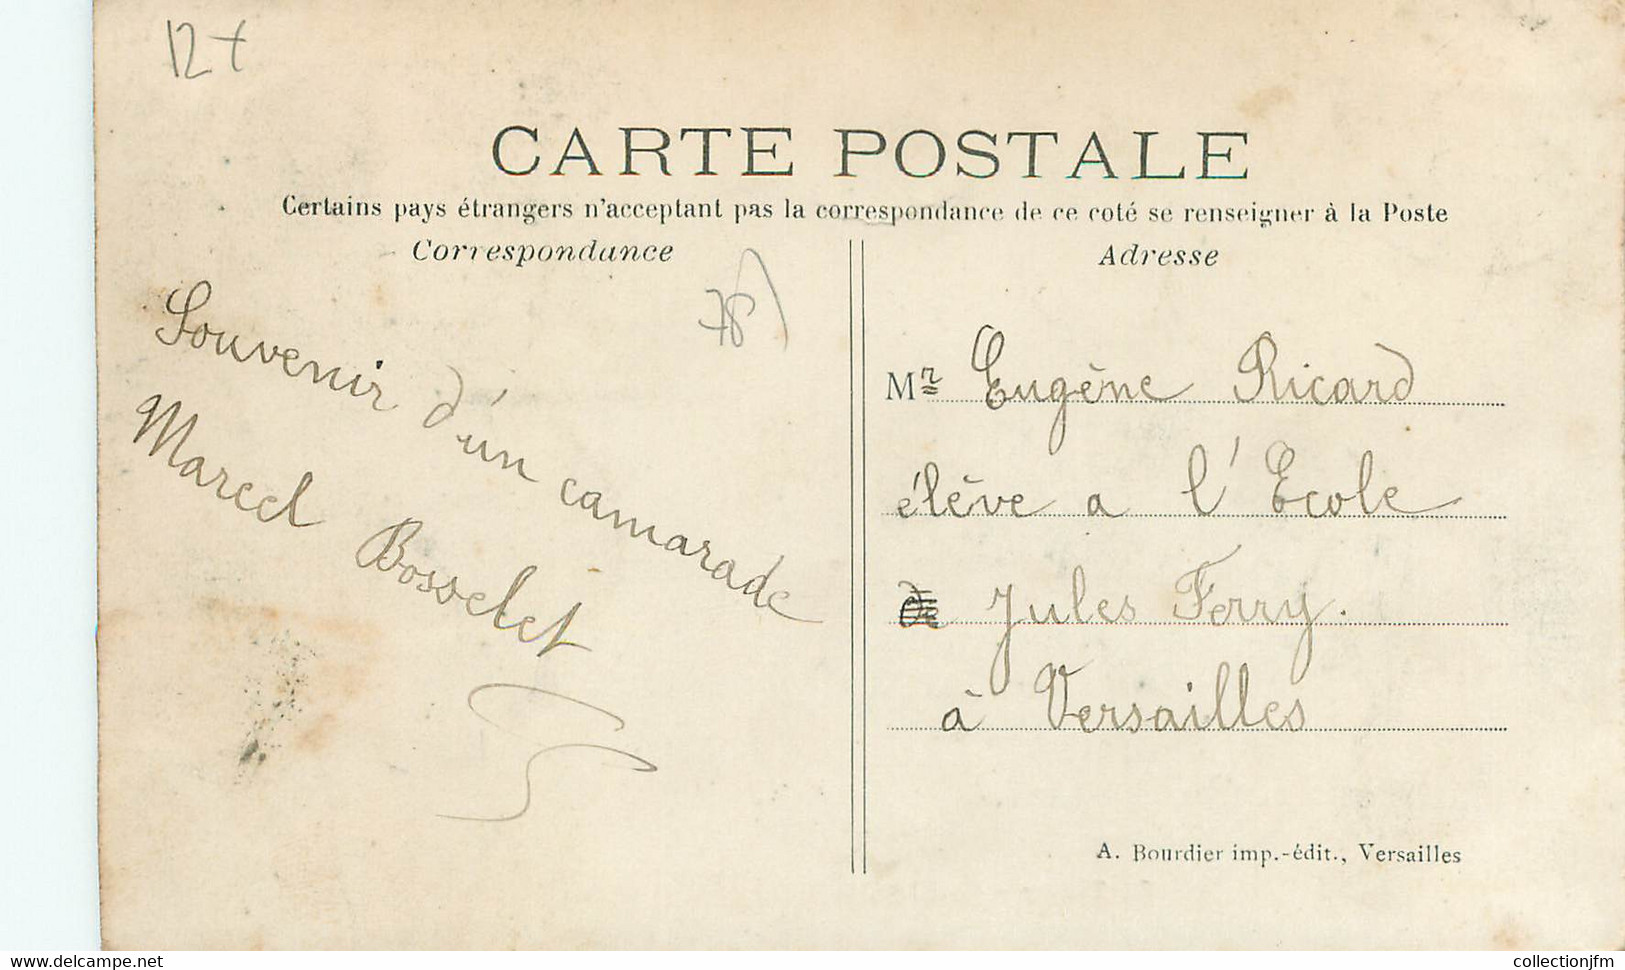 12+
CARTE POSTALE
Certains pays étrangers n'acceptant pas la correspondance de ce coté se renseigner à la Poste
Correspondance
78
Souvenir d'un camarade
Marcel Bosselet
Adresse
Mr Eugène Ricard
élève a l'Ecole
de Jules Ferry.
à Versailles
A. Bourdier imp.-édit., Versailles
www.delcampe.net
collectionjfm